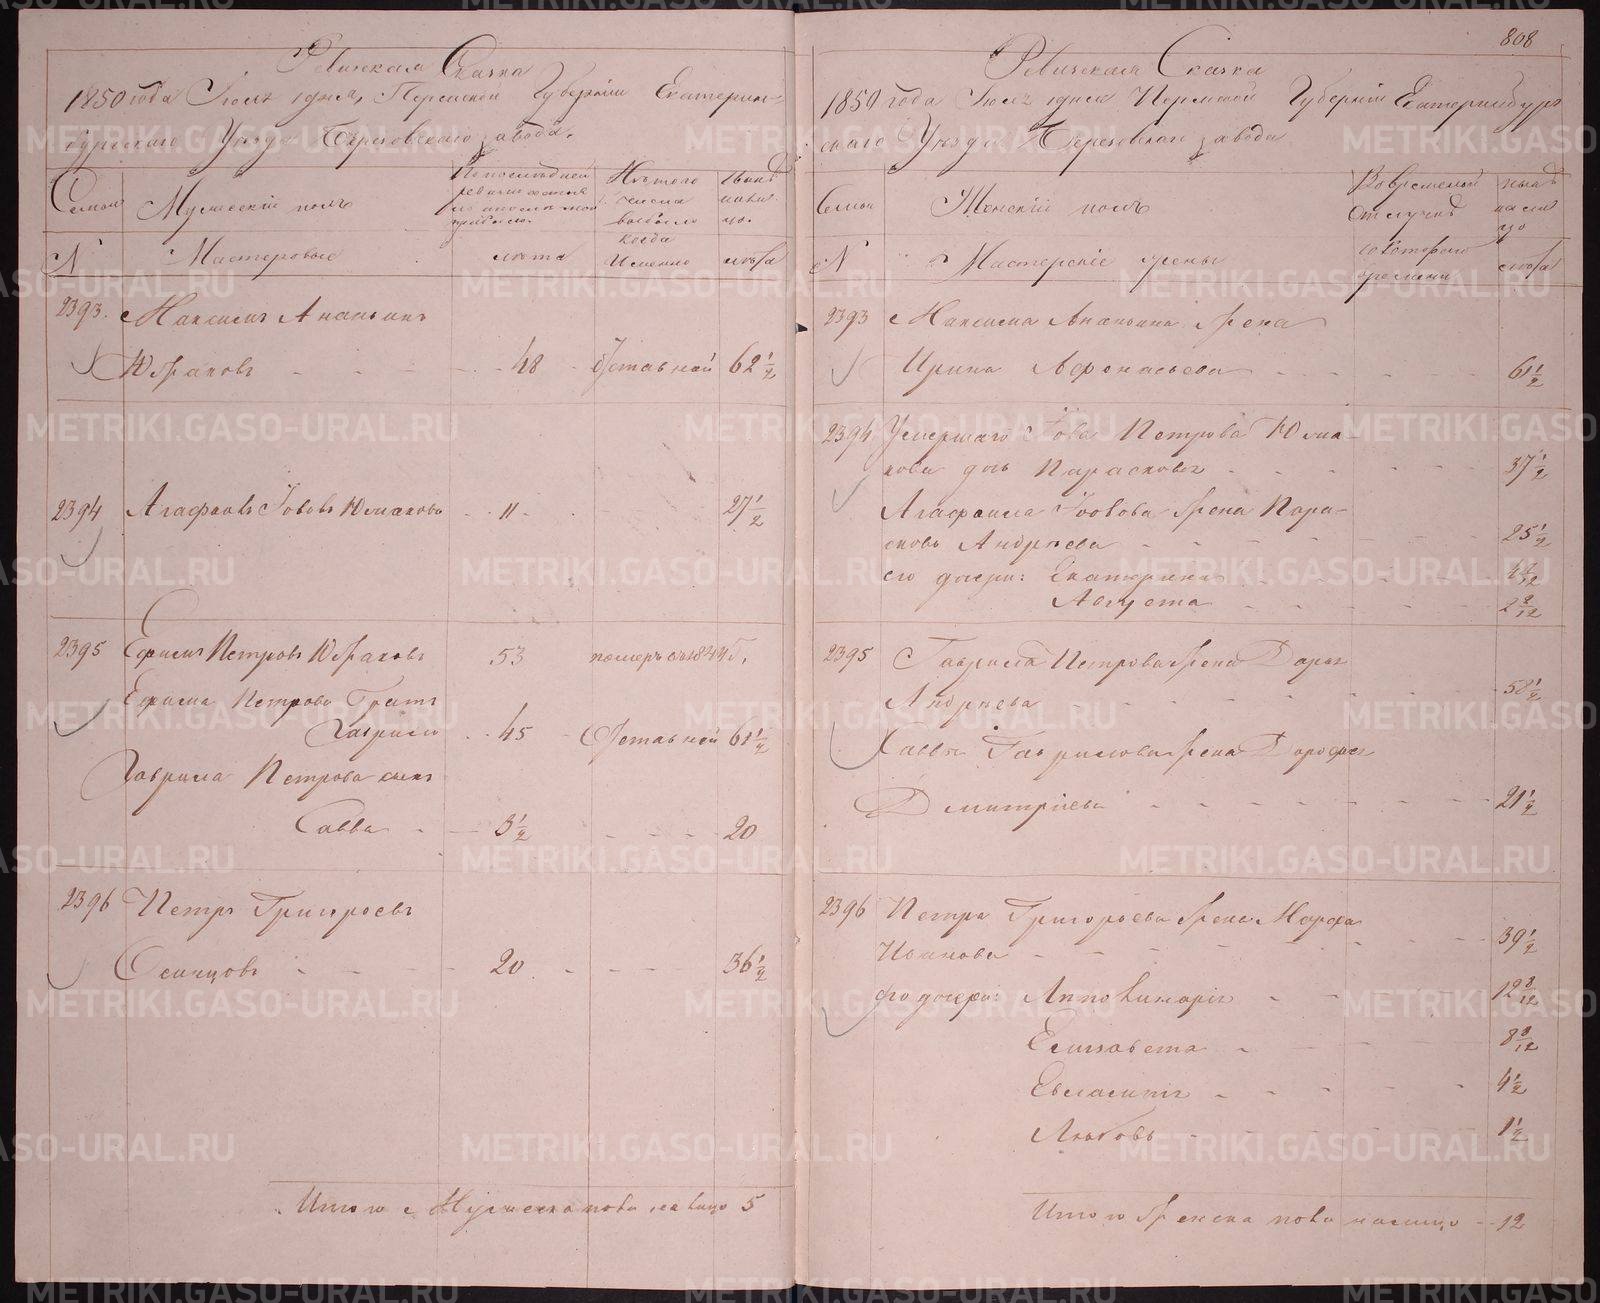 808
Ревижская Сказка
1850 года Іюля 1 дня, Пермской Губерніи Екатерин-
бургскаго Уѣзда Березовскаго завода.
Семьи
Мужескій полъ
По последней ревизіи
Изъ того числа выбыло
Нынѣ на лицо.
N
Мастеровые
лѣта
когда Именно
лѣта
2393. Максимъ Ананьинъ
48 Отставной 62 1/2
2394 Агафонъ Іововъ Юмакова 11 27 1/2
2395 Ефимъ Петровъ 53 померъ въ 1844 г.
Ефима Петрова братъ
Гаврило 45 Отставной 61 1/2
Гаврила Петрова сынъ
Савва 3 1/2 20
2396 Петръ Григорьевъ
Осинцовъ 20 36 1/2
Итого Мужеска пола на лицо 5
Ревижская Сказка
1850 года Іюля 1 дня Пермской Губерніи Екатеринбург-
скаго Уѣзда Березовскаго завода
Семьи
Женскій полъ
Во временной отлучкѣ
ныне на лицо
N
Мастерскіе жены
съ котораго времени
лѣта
2393 Максима Ананьина жена
Ирина Афонасьева 61 1/2
2394 Умершаго Іова Петрова Юма-
кова дочь Парасковья 37 1/2
Агафона Іовова жена Пара-
сковья Андреева 25 1/2
его дочери: Екатерина
Августа 2 8/12
2395 Гаврила Петрова жена Дарья
Андреева 58 1/2
Саввы Гаврилова жена Дорофея
Дмитріева 21 1/2
2396 Петра Григорьева жена Марфа
Иванова 39 1/2
его дочери: Апполинарія 12 8/12
Елизавета 8 8/12
Евлампія 4 1/2
Любовь 1 1/2
Итого женска пола на лицо 12
METRIKI.GASO-URAL.RU